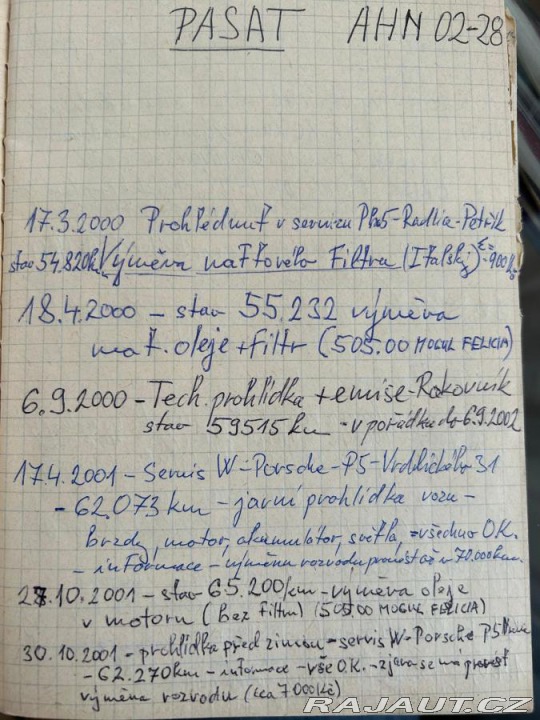 PASAT AHN 02-28
17.3.2000 Prohlédnut v servisu Pha5-Radlia-Petřík
stav 54.820km Výměna naftového Filtru (Italský) = 900 Kč
18.4.2000 - stav 55.232 výměna
mot. oleje + filtr (505.00 MOGUL FELICIA)
6.9.2000 - Tech. prohlídka + emise - Rakovník
stav 59515 km - v pořádku do 6.9.2002
17.4.2001 - Servis W-Porsche-P5-Vrchlického 31
- 62.073 km - jarní prohlídka vozu -
brzdy, motor, akumulátor, světla, = všechno O.K.
- informace - výměnu rozvodu provést až v 70.000km.
27.10.2001 - stav 65.200/km - výměna oleje
v motoru (bez filtru) (505.00 MOGUL FELICIA)
30.10.2001 - prohlídka před zimou - servis W-Porsche P5
- 62.270km - informace - vše O.K. - z jara se má provést
výměna rozvodu (cca 7000Kč)
RAJAUT.CZ